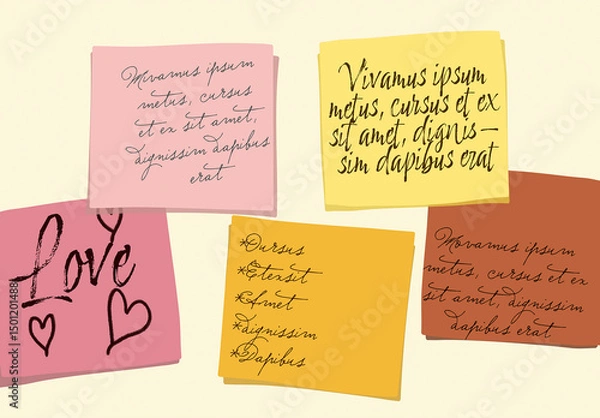 Mivamus ipsum
metus, cursus
et ex sit amet,
dignissim dapibus
erat
Vivamus ipsum
metus, cursus et ex
sit amet, dignis–
sim dapibus erat
Love
*Cursus
*Etexsit
*Amet
*dignissim
*Dapibus
Movamus ipsum
metus, cursus et ex
sit amet, dignissim
dapibus erat
Adobe Stock | #1501201488
Adobe Stock